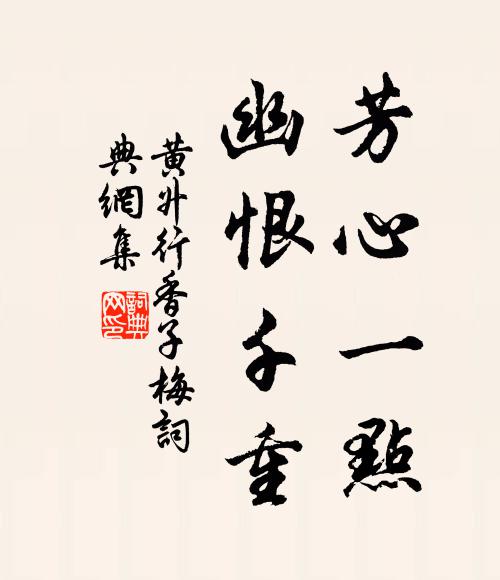 芳心一點
幽恨千重
黃升行香子梅詞
典網集
詞典
网印